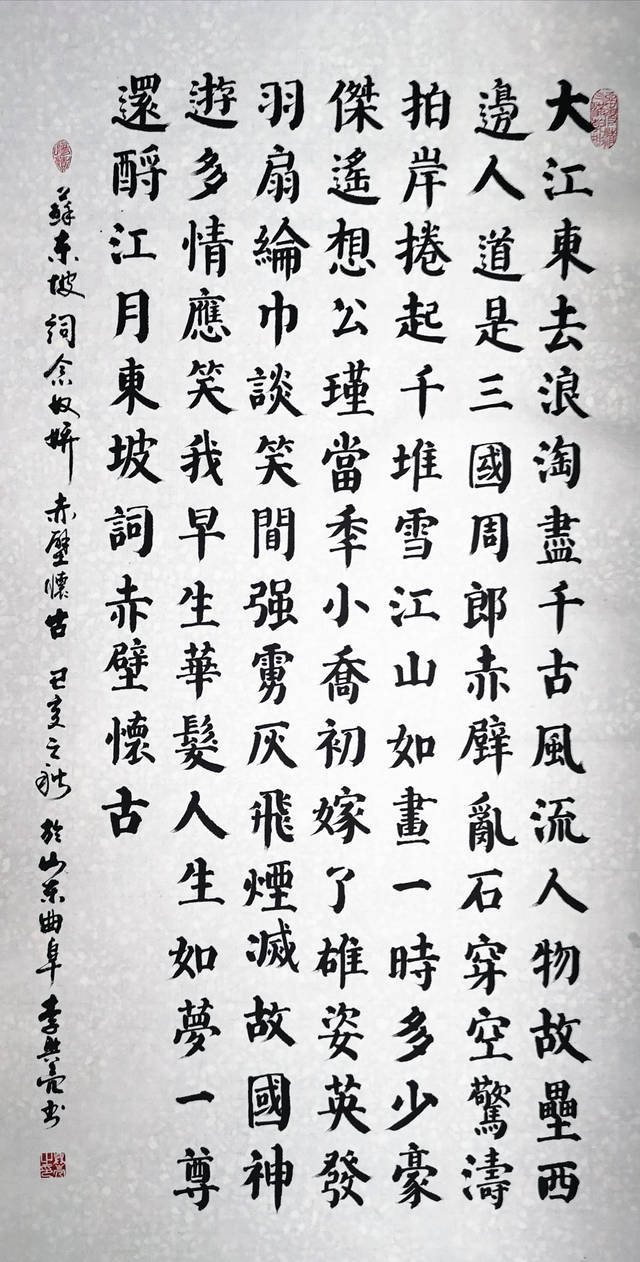 大江東去浪淘盡千古風流人物故壘西
邊人道是三國周郎赤壁亂石穿空驚濤
拍岸捲起千堆雪江山如畫一時多少豪
傑遙想公瑾當秊小喬初嫁了雄姿英發
羽扇綸巾談笑間强虜灰飛煙滅故國神
遊多情應笑我早生華髮人生如夢一尊
還酹江月東坡詞赤壁懷古
蘇東坡詞念奴嬌赤壁懷古 己亥之秋於山东曲阜李興亮书